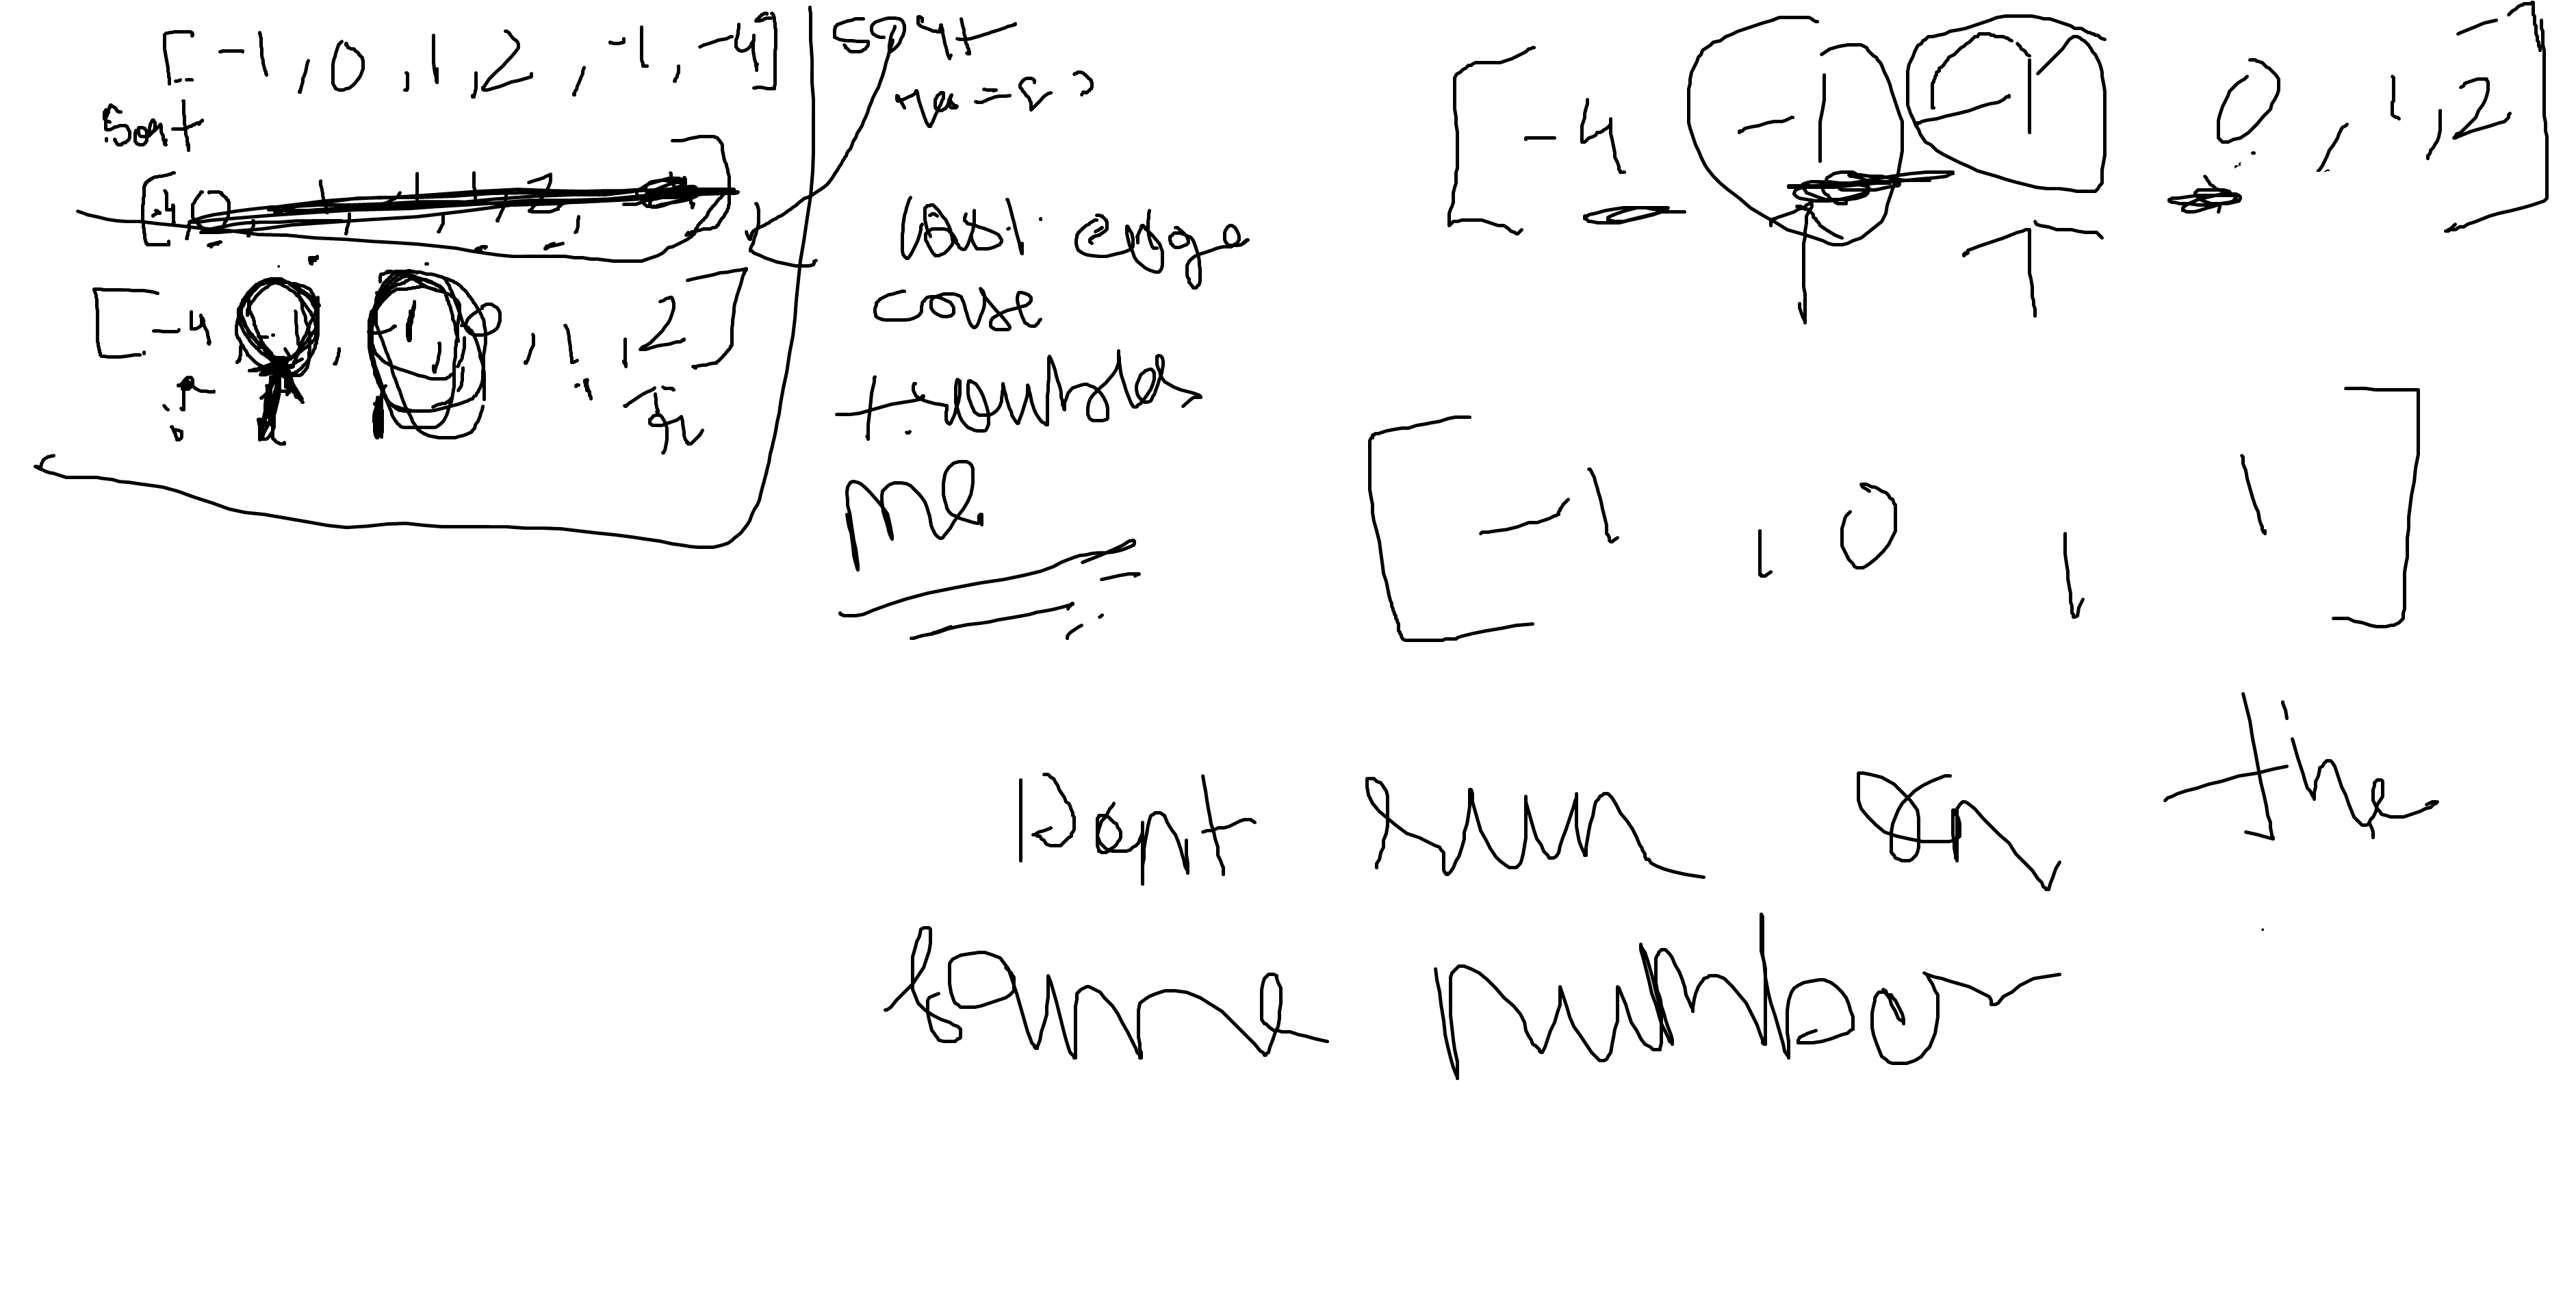 [-1, 0, 1, 2, -1, -4]
Sort
[-4, -1, -1, 0, 1, 2]
Sort
res = []
last edge
case
troubles
me
[-4 -1 -1 0, 1, 2]
[-1, 0, 1]
Dont run on the
same number